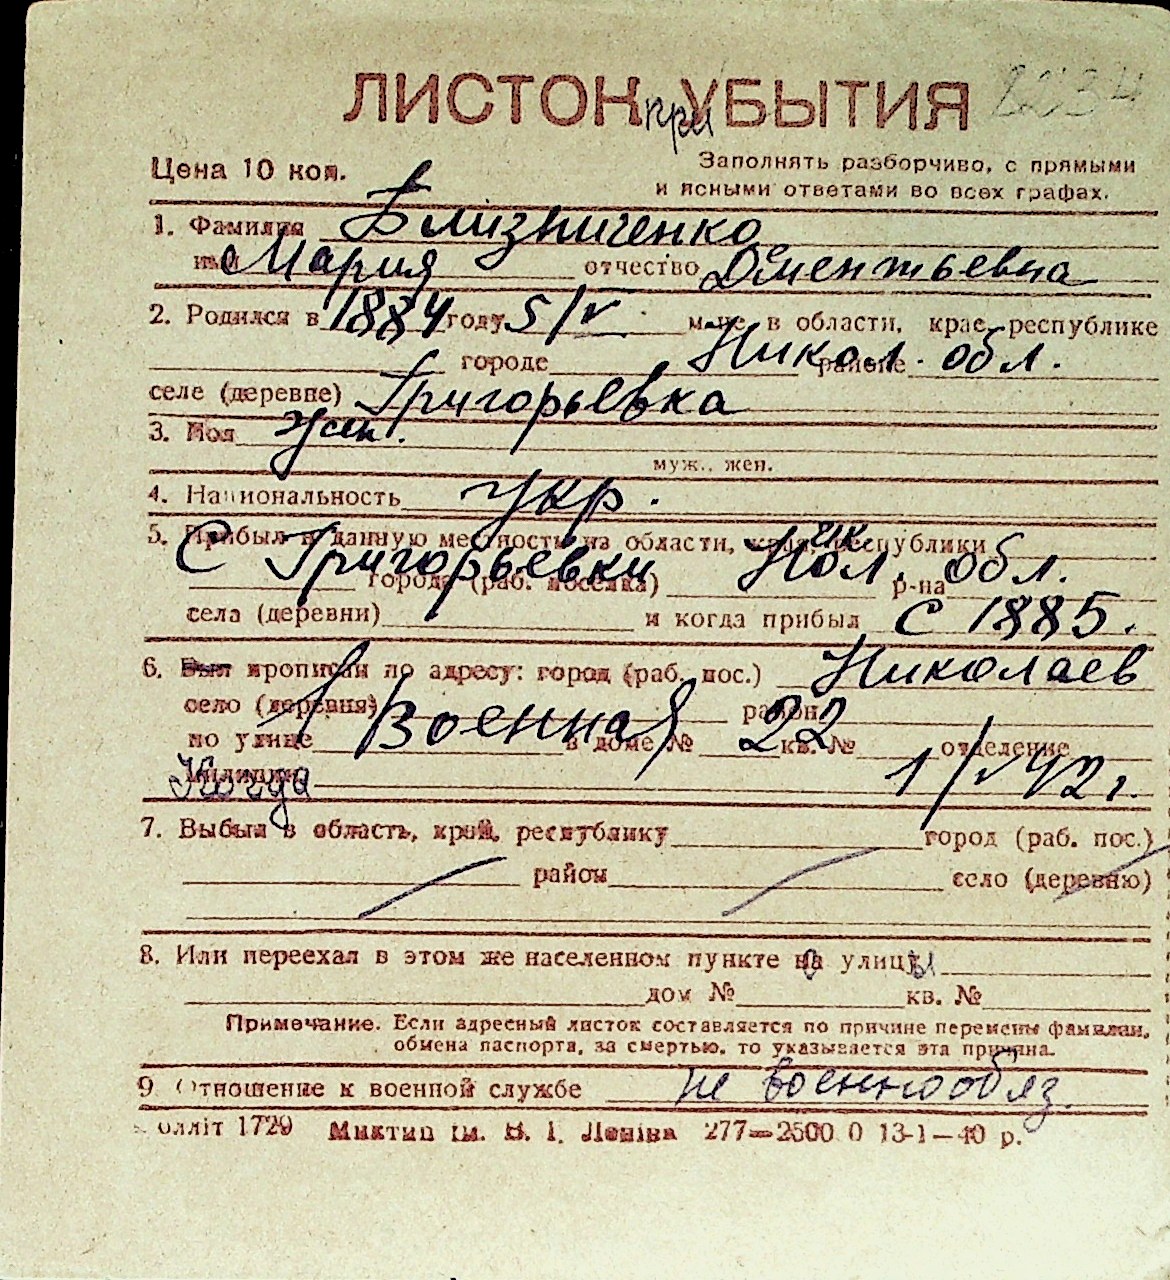 ЛИСТОК при УБЫТИЯ 2234
Цена 10 коп.
Заполнять разборчиво, с прямыми
и ясными ответами во всех графах.
1. Фамилия Близниченко
имя Мария отчество Дементьевна
2. Родился в 1884 году 5/IV м-це в области, крае, республике
городе Никол. районе обл.
селе (деревне) Григорьевка
3. Пол жен.
муж., жен.
4. Национальность укр.
5. Прибыл в данную местность из области, края, республики
С Григорьевки города (раб. поселка) Ник. обл. р-на
села (деревни) и когда прибыл с 1885.
6. Был прописан по адресу: город (раб. пос.) Николаев
село (деревня) район
по улице 1 Военная в доме № 22 кв. № отделение
милиции Когда 1/IV 42 г.
7. Выбыл в область, край, республику город (раб. пос.)
район село (деревню)
8. Или переехал в этом же населенном пункте на улицу
дом № кв. №
Примечание. Если адресный листок составляется по причине перемены фамилии,
обмена паспорта, за смертью, то указывается эта причина.
9. Отношение к военной службе не военнообяз.
олліт 1729 Миктип ім. В. І. Леніна 277—2500 0 13-1—40 р.